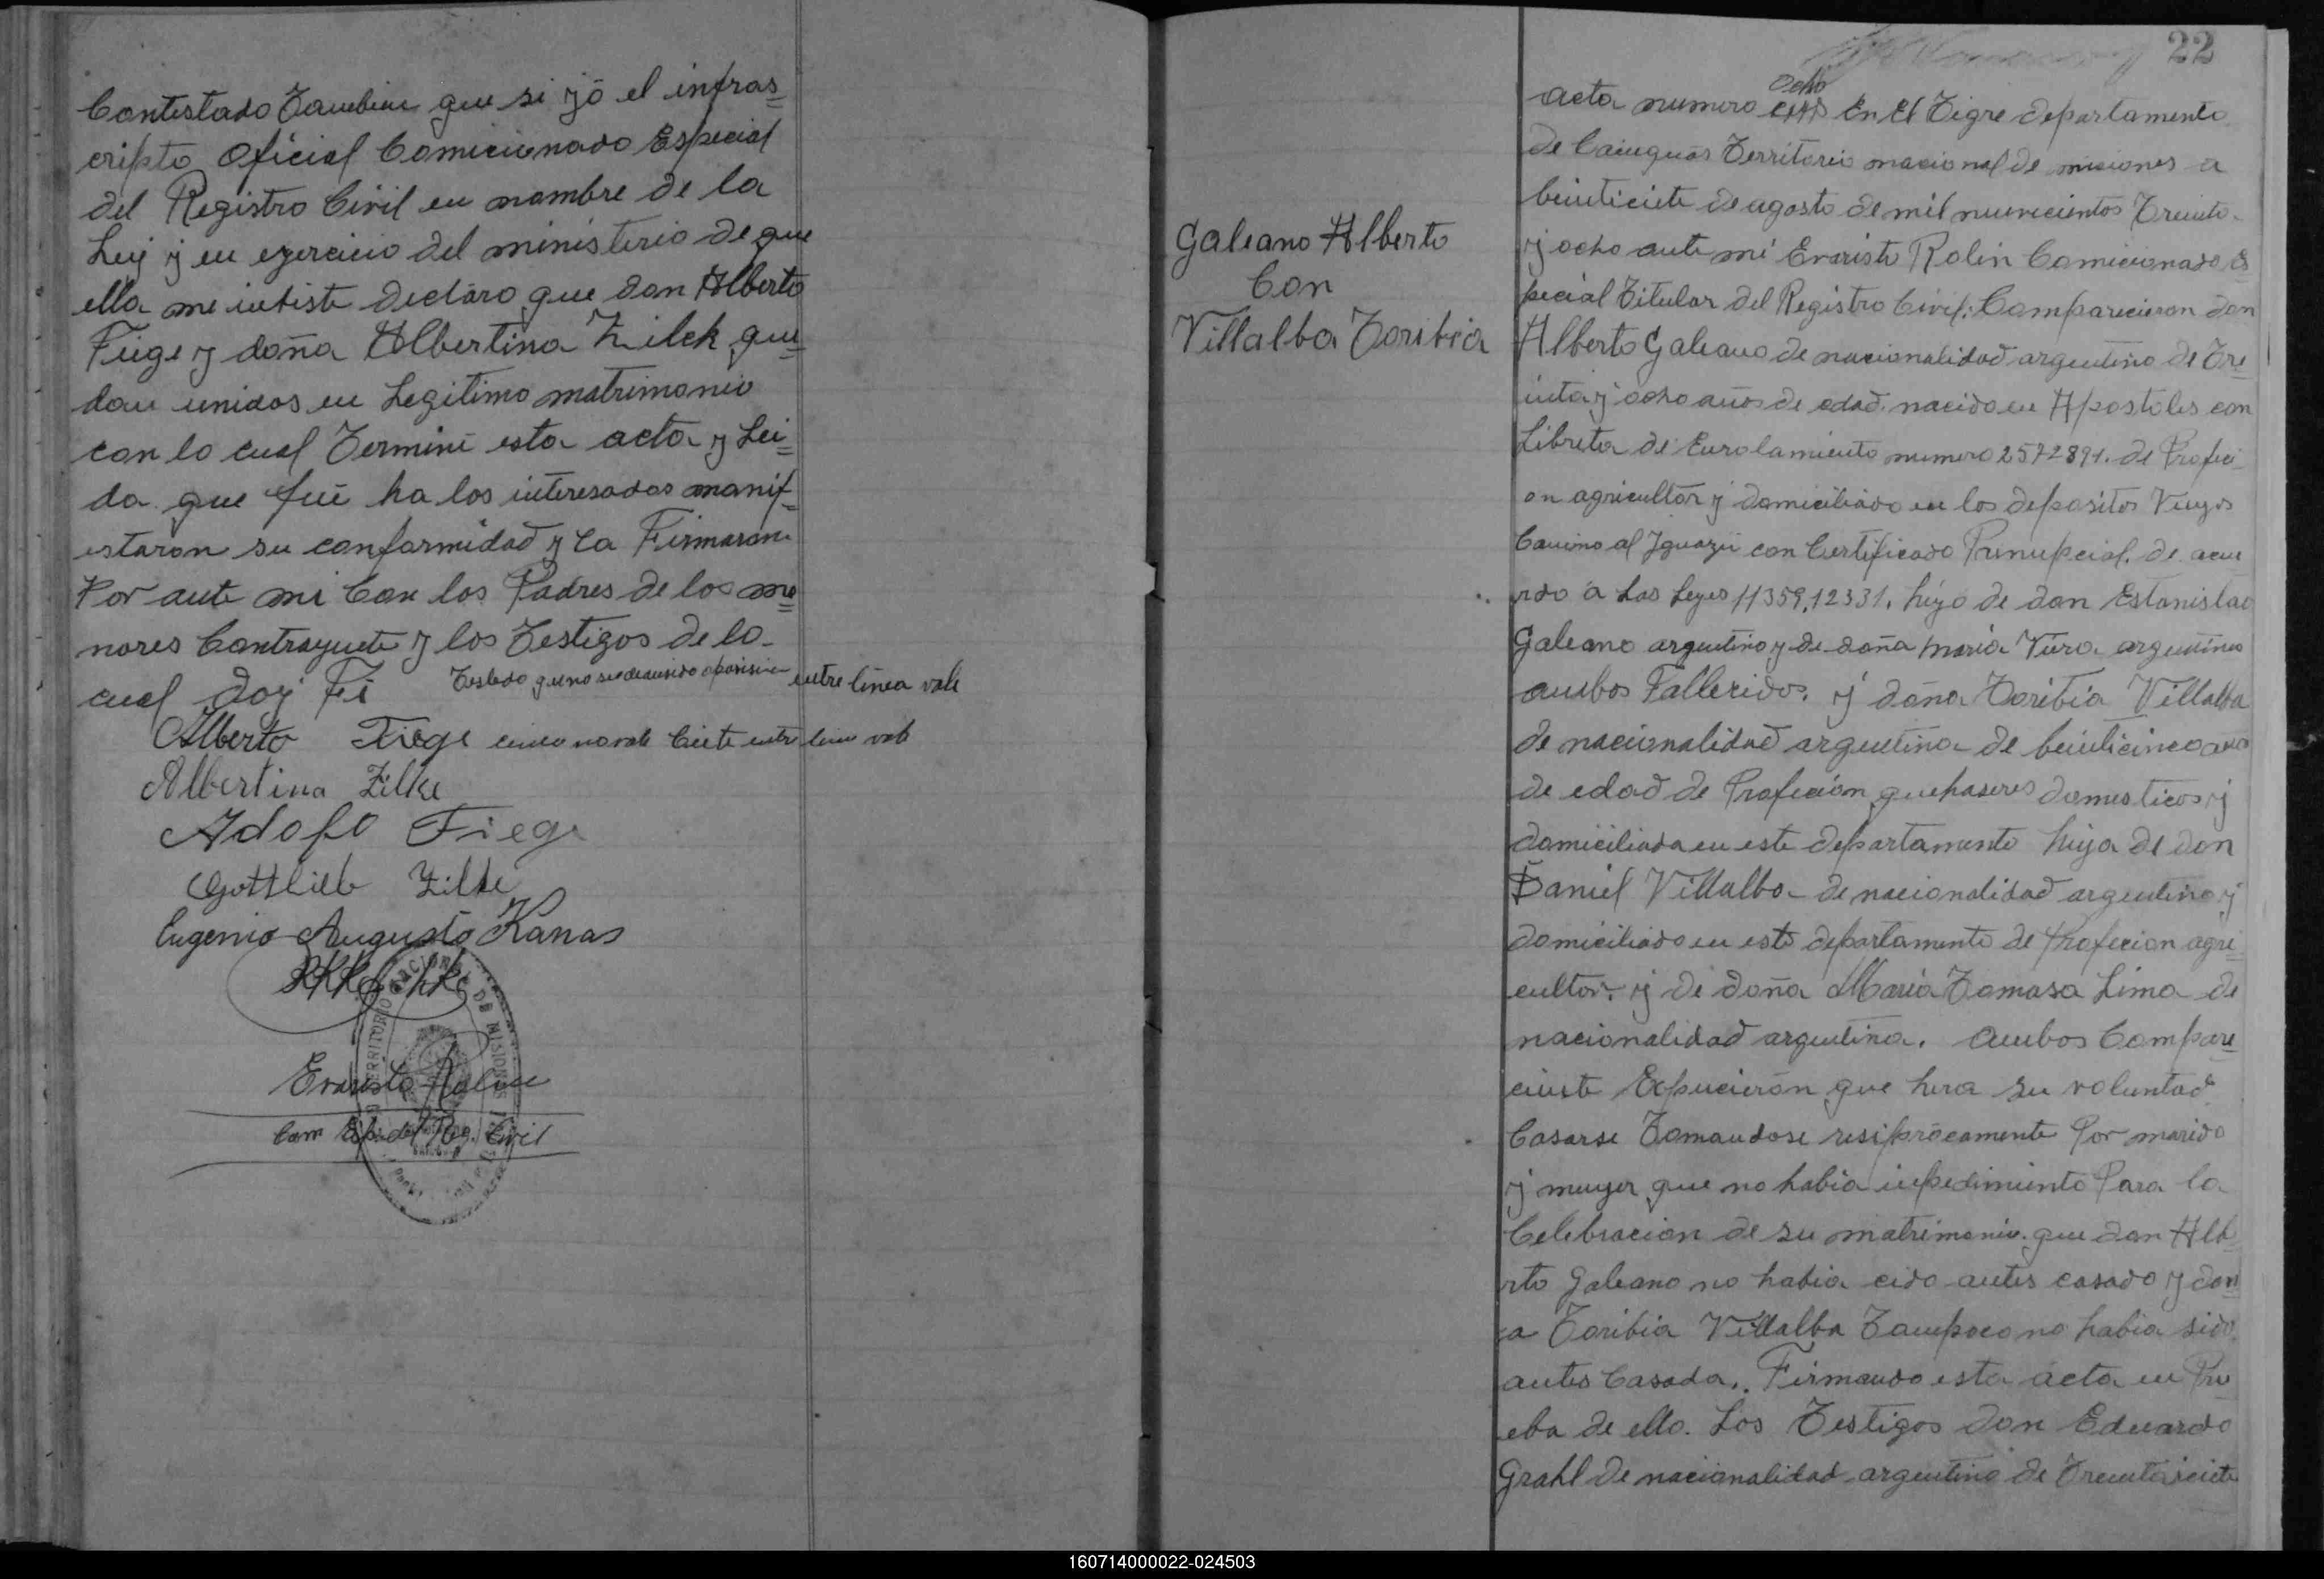 Contestado Tambien que si yó el infras=
cripto Oficial Comicionado Especial
del Registro Civil en nombre de la
Ley y en egercicio del ministerio de que
ella me intiste decláro que don Alberto
Fiege y doña Albertina Zilek que=
dan unidos en Legitimo matrimonio
con lo cual Terminé esta acta y Lei=
da que fué ha los interesados manif=
estaron su conformidad y La Firmaron
Por ante mi Con los Padres de los me=
nores Contrayente y los Testigos de lo
cual doy Fé Testado que no entre linea vale
Alberto Fiege entre linea vale
Albertina Zilke
Adolfo Fiege
Gottlieb Zilke
Eugenio Augusto Kanas
TERRITORIO NACIONAL DE MISIONES
Evaristo Rolin
Com Esp. del Reg. Civil
22
Galeano Alberto
Con
Villalba Toribia
Ocho
acta numero En El Tigre departamento
de Cainguas Territorio nacional de misiones a
beinticiete de agosto de mil nuevecientos Treinta
y ocho ante mi Evaristo Rolin Comicionado Es=
pecial Titular del Registro Civil: Comparecieron don
Alberto Galeano de nacionalidad argentino de Tre=
inta y ocho años de edad. nacido en Apostoles con
Libreta de Enrolamiento numero 2572891. de Profeci=
on agricultor y domiciliado en los depositos Viejos
Camino al Iguazú con Certificado Prenupcial. de acue
rdo á Las Leyes 11359,12331. hijo de don Estanislao
Galeano argentino y de doña María Viera argentinos
ambos Fallecidos. y doña Toribia Villalba
de nacionalidad argentina de beinticinco años
de edad de Profeción quehaseres domesticos y
domiciliada en este departamento hija de don
Daniel Villalba de nacionalidad argentino y
domiciliado en este departamento de Profecion agri=
cultor. y de doña María Tomasa Lima de
nacionalidad argentina. Ambos Compare=
ciente Expucierón que hera su voluntad
Casarse Tomandose resiprócamente Por marido
y muyer que no habia inpedimiento Para la
Celebracion de su matrimonio. que don Albe
rto Galeano no habia cido antes casado y don
a Toribia Villalba Tampoco no habia sido
antes Casada. Firmando esta ácta en Pru
eba de ello. Los Testigos don Eduardo
Grahl de nacionalidad argentino de Treintaiciete
160714000022-024503